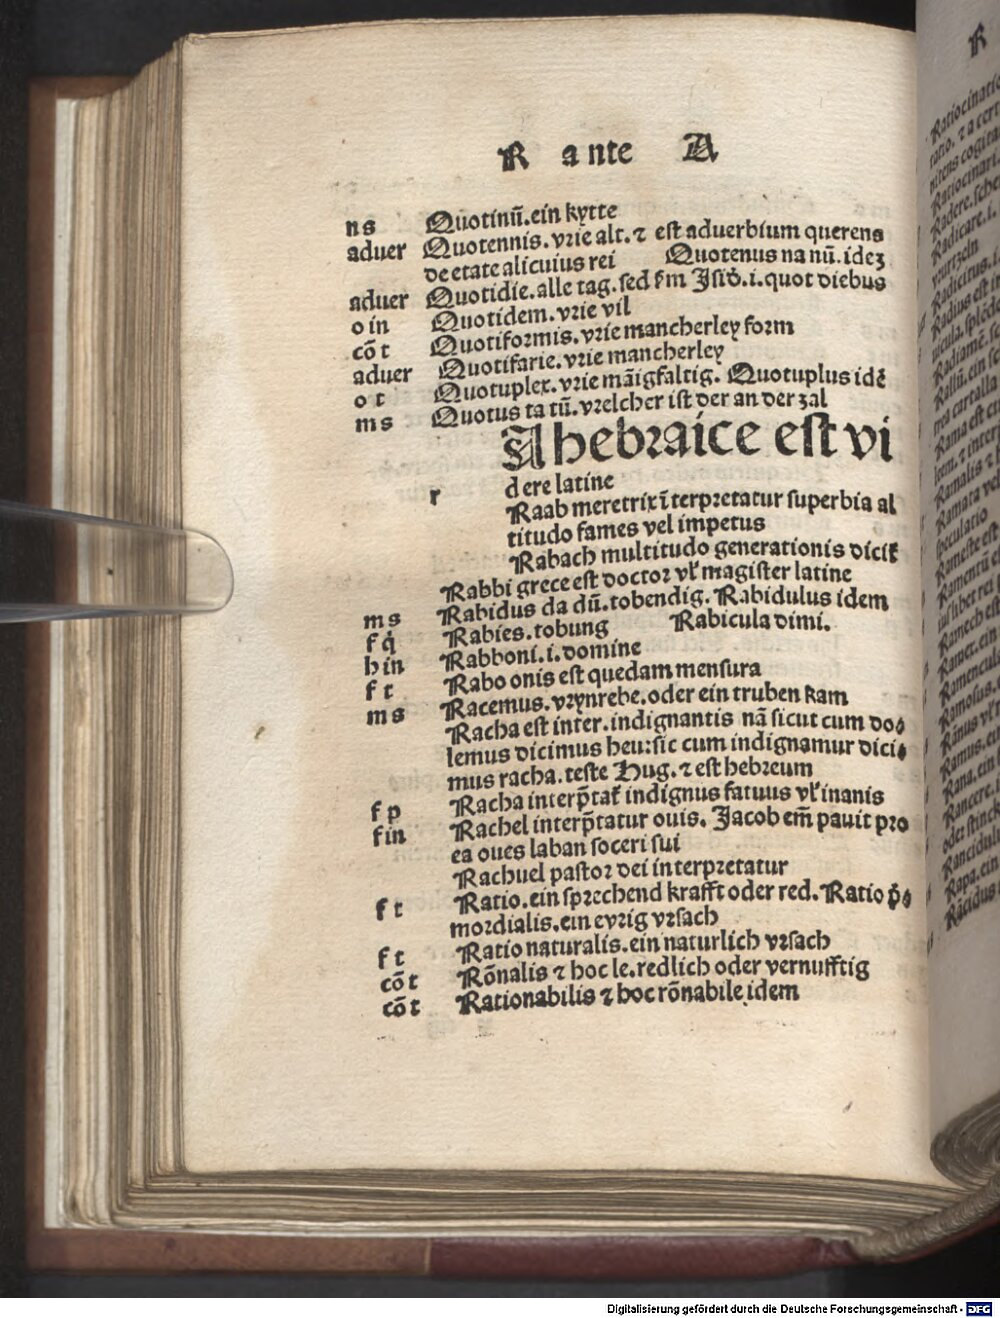 R ante A
n s Quotinū. ein kytte
aduer Quotennis. vrie alt. ⁊ est aduerbium querens
de etate alicuius rei Quotenus na nū. ideʒ
aduer Quotidie. alle tag. sed ẜm Jsid̄. i. quot diebus
o in Quotidem. vrie vil
cō t Quotiformis. vrie mancherley form
aduer Quotifarie. vrie mancherley
o t Quotuplex. vrie māigfaltig. Quotuplus idē
m s Quotus ta tū. vrelcher ist der an der zal
A hebraice est vi
r dere latine
Raab meretrix īterpretatur superbia al
titudo fames vel impetus
Rabach multitudo generationis diciť
Rabbi grece est doctor vł magister latine
m s Rabidus da dū. tobendig. Rabidulus idem
f q̇ Rabies. tobung Rabicula dimi.
h in Rabboni. i. domine
f t Rabo onis est quedam mensura
m s Racemus. vrynrebe. oder ein truben kam
Racha est inter. indignantis nā sicut cum do⸗
lemus dicimus heu: sic cum indignamur dici⸗
mus racha. teste Hug. ⁊ est hebreum
f p Racha interp̄tať indignus fatuus vł inanis
f in Rachel interp̄tatur ouis. Jacob em̄ pauit pro
ea oues laban soceri sui
Rachuel pastor dei interpretatur
f t Ratio. ein sprechend krafft oder red. Ratio p̄⸗
mordialis. ein evrig vrsach
f t Ratio naturalis. ein naturlich vrsach
cō t Rōnalis ⁊ hoc le. redlich oder vernufftig
cō t Rationabilis ⁊ hoc rōnabile idem
R
Digitalisierung gefördert durch die Deutsche Forschungsgemeinschaft - DFG